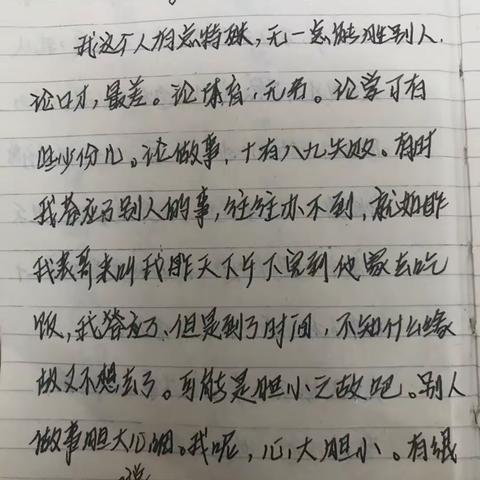 我这个人有点特殊，无一点能胜别人.
论口才，最差。论体育，无名。论学习有
些少份儿。论做事，十有八九失败。有时
我答应了别人的事，往往办不到，就如昨
我表哥来叫我昨天下午下完到他家去吃
饭，我答应了、但是到了时间，不知什么缘
故又不想去了。可能是胆小之故吧。别人
做事胆大心细。我呢，心大胆小。有很